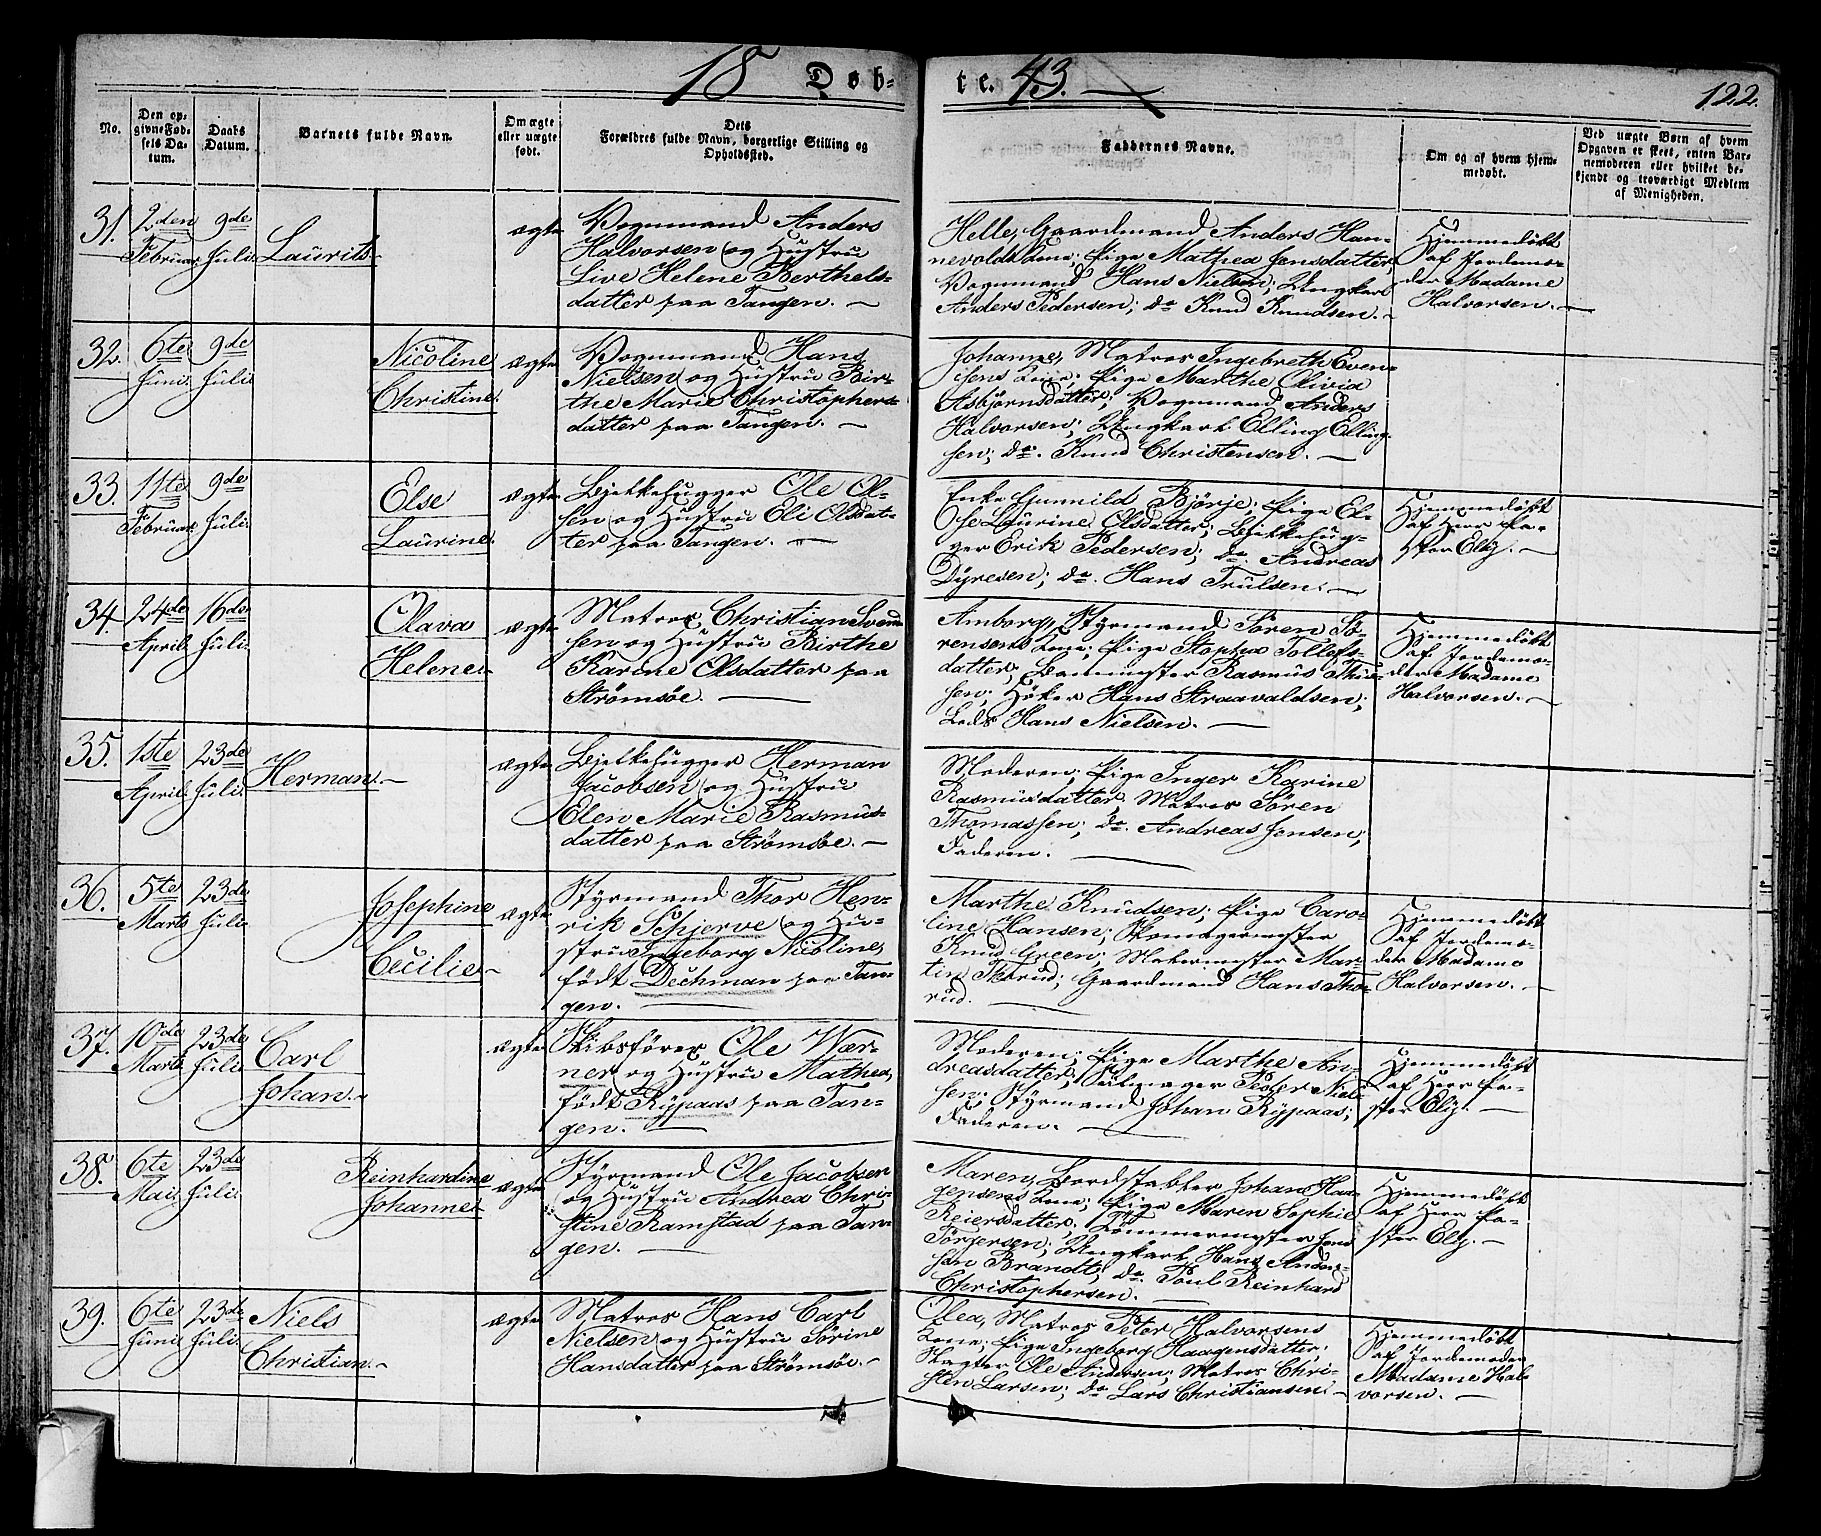 18 Döb-
te. 43.
122.
No.
Den op-
givne Föd-
sels Da-
tum.
Daabs
Datum.
Barnets fulde Navn.
Om ægte
eller uægte
födt.
Dets
Forældres fulde Navn, borgerlige Stilling og
Opholdssted.
Faddernes Navne.
Om og af hvem hjem-
medöbt.
Ved uægte Börn af hvem
Opgaven er skeet, enten Bar-
nemoderen eller hvilket be-
kjendt og troværdigt Medlem
af Menigheden.
31.
2den
Februar
9de
Juli
Laurits
ægte
Vognmand Anders
Halvorsen og Hustru
Live Helene Berthels-
datter paa Tangen.
Helle, Gaardmand Anders Han-
nevolds Kone; Pige Mathea Jensdatter;
Vognmand Hans Nielsen; Ungkarl
Anders Pedersen; do Knud Knudsen.
Hjemmedöbt
af Jordemo-
der Madame
Halvorsen.
32.
6te
Juni
9de
Juli
Nicoline
Christine
ægte
Vognmand Hans
Nielsen og Hustru Bir-
the Marie Christophers-
datter paa Tangen.
Johanne, Matros Ingebreth Even-
sens Kone; Pige Marthe Olivia
Asbjörnsdatter; Vognmand Anders
Halvorsen; Ungkarl Elling Elling-
sen; do. Knud Christensen.
33.
11te
Februar
9de
Juli
Else
Laurine
ægte
Bjelkehugger Ole Ol-
sen og Hustru Eli Olsdat-
ter paa Tangen.
Enke Gunnild Björje; Pige El-
se Laurine Olsdatter; Bjelkehug-
ger Erik Pedersen; do. Andreas
Dyresen; do. Hans Trulsen.
Hjemmedöbt
af Herr Pa-
stor Elg.
34.
24de
April
16de
Juli
Olava
Helene
ægte
Matros Christian Svend-
sen og Hustru Birthe
Karine Olsdatter paa
Strömsöe.
Amborg, Styrmand Sören Sö-
rensens Kone; Pige Stopha Tollefs-
datter; Rasmus
sen; Höker Hans Straavaldsen;
Lods Hans Nielsen.
Hjemmedöbt
af Jordemo-
der Madame
Halvorsen.
35.
1ste
April
23de
Juli
Herman
ægte
Bjelkehugger Herman
Jacobsen og Hustru
Elen Marie Rasmus-
datter paa Strömsöe.
Moderen; Pige Inger Karine
Rasmusdatter; Matros Sören
Thomassen; do. Andreas Jensen;
Faderen.
36.
5te
Marts
23de
Juli
Josephine
Cecilie
ægte
Styrmand Thor Hen-
rik Schjerve og Hu-
stru Ingeborg Nicoline,
födt Dechman paa Tan-
gen.
Marthe Knudsen; Pige Caro-
line Hansen; Skomagermester
Knud Green; Malermester Mar-
tin Thorud; Gaardmand Hans Tho-
rud.
Hjemmedöbt
af Jordemo-
der Madame
Halvorsen.
37.
10de
Marts
23de
Juli
Carl
Johan
ægte
Skibsförer Ole Wær-
ner og Hustru Mathea,
födt Rypaas paa Tan-
gen.
Moderen; Pige Marthe An-
dreasdatter; Seilmager Peder Niel-
sen; Styrmand Johan Rypaas;
Faderen.
Hjemmedöbt
af Herr Pa-
stor Elg.
38.
6te
Mai
23de
Juli
Reinhardine
Johanne
ægte
Styrmand Ole Jacobsen
og Hustru Andrea Chri-
stine Ramstad paa Tan-
gen.
Maren, Bordstabler Johan Haa-
gensens Kone; Pige Maren Sophie
Reiersdatter; Tömmermester Jens
Törgersen; Ungkarl Hans Ander-
sen Brandt; do. Poul Reinhard
Christophersen.
Hjemmedöbt
af Herr Pa-
stor Elg.
39.
6te
Juni
23de
Juli
Niels
Christian
ægte
Matros Hans Carl
Nielsen og Hustru Sörine
Hansdatter paa Strömsöe.
Olea, Matros Peter Halvorsens
Kone; Pige Ingeborg Haagensdatter;
Slagter Ole Andersen; Matros Chri-
sten Larsen; do Lars Christiansen.
Hjemmedöbt
af Jordemoder
Madame Hal-
vorsen.